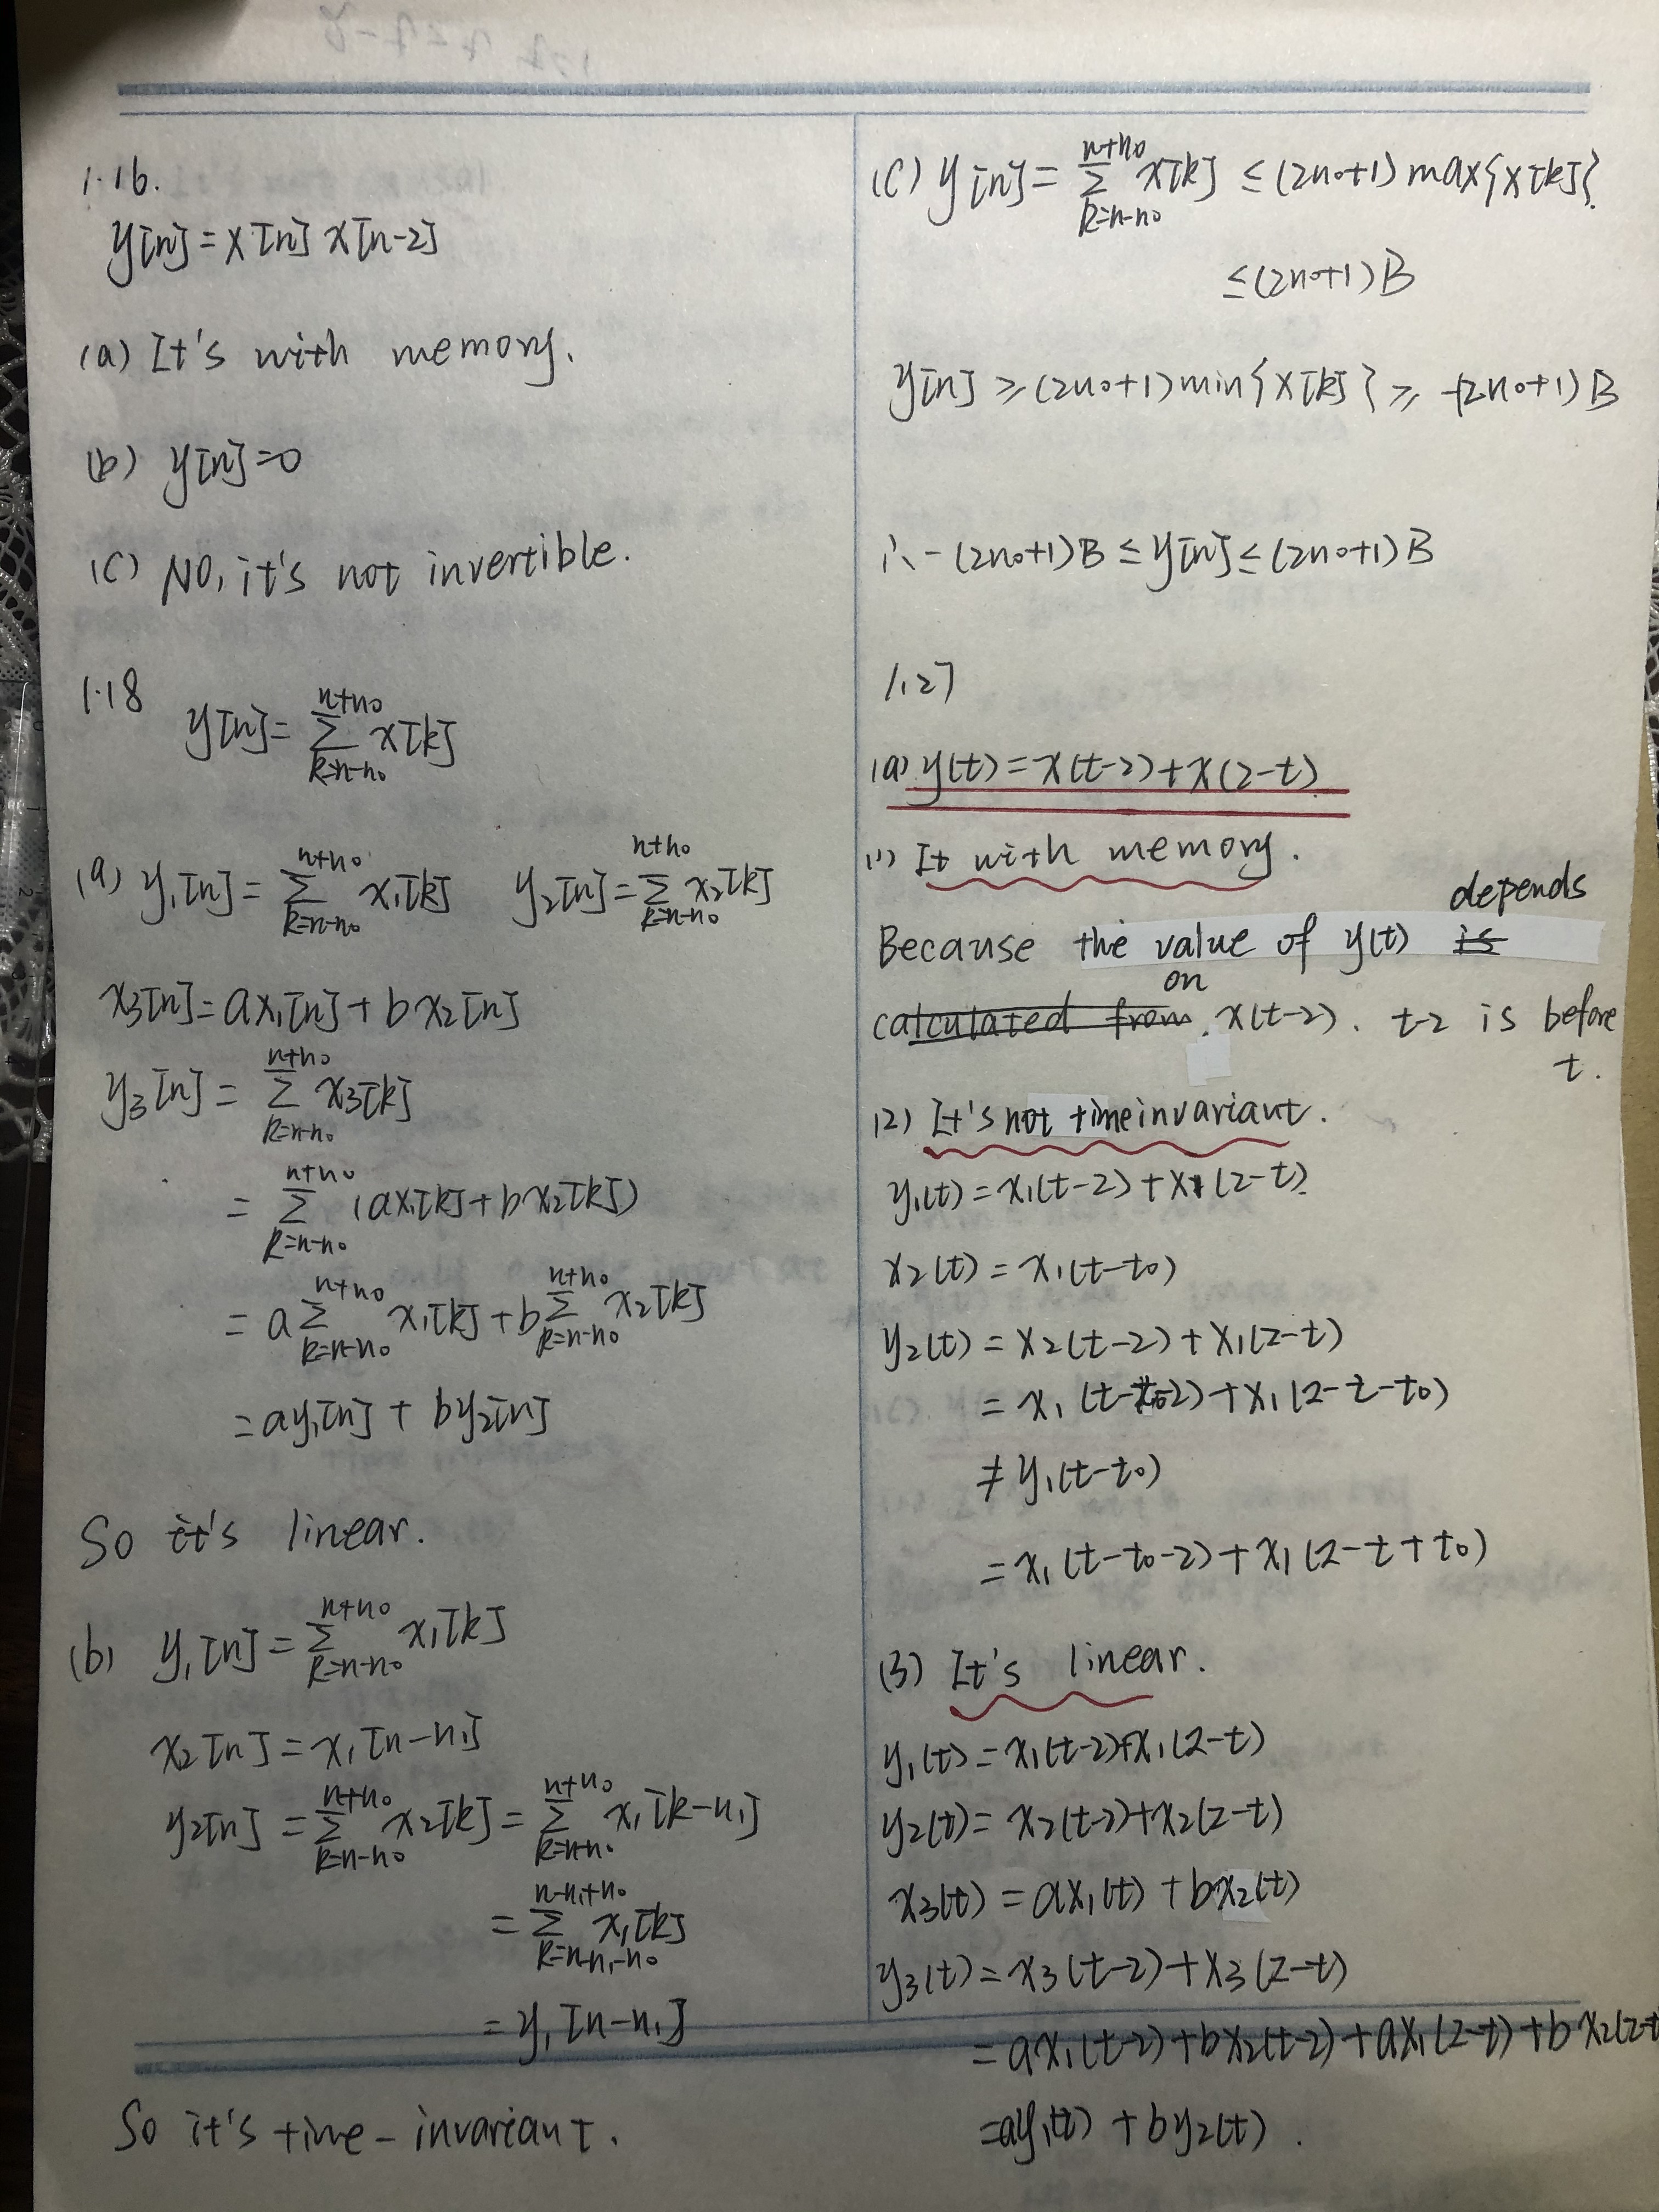 1.16.
y[n] = x[n] x[n-2]
(a) It's with memory.
(b) y[n]=0
(c) NO, it's not invertible.
1.18 y[n] = ∑_{k=n-n₀}^{n+n₀} x[k]
(a) y₁[n] = ∑_{k=n-n₀}^{n+n₀} x₁[k] y₂[n] = ∑_{k=n-n₀}^{n+n₀} x₂[k]
x₃[n] = ax₁[n] + bx₂[n]
y₃[n] = ∑_{k=n-n₀}^{n+n₀} x₃[k]
= ∑_{k=n-n₀}^{n+n₀} (ax₁[k] + bx₂[k])
= a∑_{k=n-n₀}^{n+n₀} x₁[k] + b∑_{k=n-n₀}^{n+n₀} x₂[k]
= ay₁[n] + by₂[n]
So it's linear.
(b) y₁[n] = ∑_{k=n-n₀}^{n+n₀} x₁[k]
x₂[n] = x₁[n-n₁]
y₂[n] = ∑_{k=n-n₀}^{n+n₀} x₂[k] = ∑_{k=n-n₀}^{n+n₀} x₁[k-n₁]
= ∑_{k=n-n₁-n₀}^{n-n₁+n₀} x₁[k]
= y₁[n-n₁]
So it's time-invariant.
(c) y[n] = ∑_{k=n-n₀}^{n+n₀} x[k] ≤ (2n₀+1) max{x[k]}
≤ (2n₀+1) B
y[n] ≥ (2n₀+1) min{x[k]} ≥ -(2n₀+1) B
∴ -(2n₀+1) B ≤ y[n] ≤ (2n₀+1) B
1.27
(a) y(t) = x(t-2) + x(2-t)
(1) It with memory.
Because the value of y(t) depends
on x(t-2). t-2 is before
t.
(2) It's not time invariant.
y₁(t) = x₁(t-2) + x₁(2-t)
x₂(t) = x₁(t-t₀)
y₂(t) = x₂(t-2) + x₁(2-t)
= x₁(t-t₀-2) + x₁(2-t-t₀)
≠ y₁(t-t₀)
= x₁(t-t₀-2) + x₁(2-t+t₀)
(3) It's linear.
y₁(t) = x₁(t-2)+x₁(2-t)
y₂(t) = x₂(t-2)+x₂(2-t)
x₃(t) = ax₁(t) + bx₂(t)
y₃(t) = x₃(t-2) + x₃(2-t)
= ax₁(t-2) + bx₂(t-2) + ax₁(2-t) + bx₂(2-t
= ay₁(t) + by₂(t).